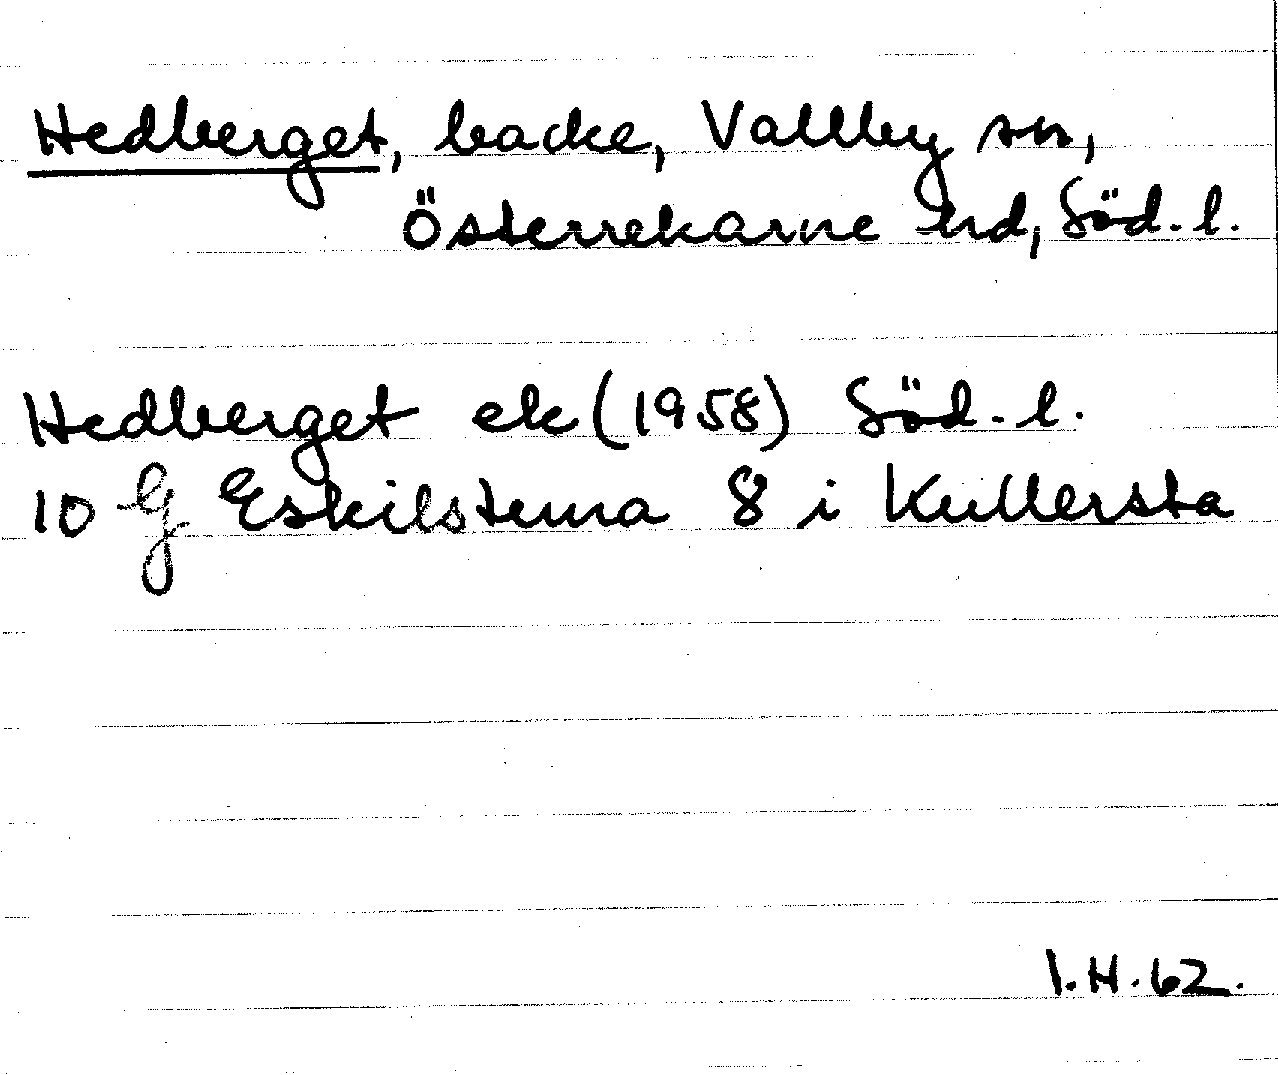 Hedberget, backe, Vallby sn,
Österrekarne hrd, Söd. l.
Hedberget ek (1958) Söd. l.
10 G Eskilstuna 8 i Kullersta
I.H.62.